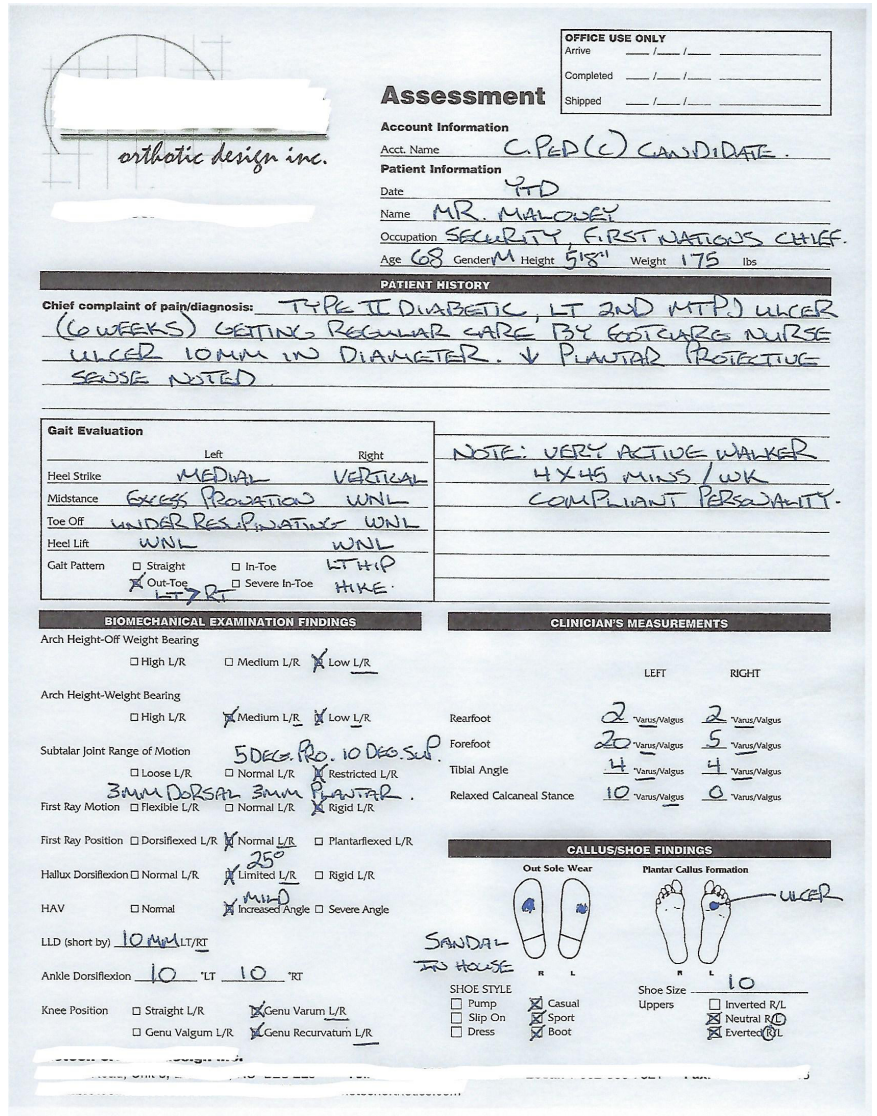 OFFICE USE ONLY
Arrive ___ /___ /___
Completed ___ /___ /___
Shipped ___ /___ /___
Assessment
orthotic design inc.
Account Information
Acct. Name C.PED(C) CANDIDATE.
Patient Information
Date YTD
Name MR. MALONEY
Occupation SECURITY, FIRST NATIONS CHIEF.
Age 68 Gender M Height 5'8" Weight 175 lbs
PATIENT HISTORY
Chief complaint of pain/diagnosis: TYPE II DIABETIC, LT 2ND MTPJ ULCER
(6 WEEKS) GETTING REGULAR CARE BY FOOTCARE NURSE
ULCER 10MM IN DIAMETER. ↓ PLANTAR PROTECTIVE
SENSE NOTED
Gait Evaluation
Left Right
Heel Strike MEDIAL VERTICAL
Midstance EXCESS PRONATION WNL
Toe Off UNDER RESUPINATING WNL
Heel Lift WNL WNL
Gait Pattern ☐ Straight ☐ In-Toe LT HIP
☒ Out-Toe ☐ Severe In-Toe HIKE.
LT > RT
NOTE: VERY ACTIVE WALKER
4X45 MINS / WK
COMPLIANT PERSONALITY.
BIOMECHANICAL EXAMINATION FINDINGS
Arch Height-Off Weight Bearing
☐ High L/R ☐ Medium L/R ☒ Low L/R
Arch Height-Weight Bearing
☐ High L/R ☒ Medium L/R ☒ Low L/R
Subtalar Joint Range of Motion 5 DEG. PRO. 10 DEG. SUP.
☐ Loose L/R ☐ Normal L/R ☒ Restricted L/R
3MM DORSAL 3MM PLANTAR.
First Ray Motion ☐ Flexible L/R ☐ Normal L/R ☒ Rigid L/R
First Ray Position ☐ Dorsiflexed L/R ☒ Normal L/R ☐ Plantarflexed L/R
25°
Hallux Dorsiflexion ☐ Normal L/R ☒ Limited L/R ☐ Rigid L/R
MILD
HAV ☐ Normal ☒ Increased Angle ☐ Severe Angle
LLD (short by) 10MM LT/RT
Ankle Dorsiflexion 10 °LT 10 °RT
Knee Position ☐ Straight L/R ☒ Genu Varum L/R
☐ Genu Valgum L/R ☒ Genu Recurvatum L/R
CLINICIAN'S MEASUREMENTS
LEFT RIGHT
Rearfoot 2 °Varus/Valgus 2 °Varus/Valgus
Forefoot 20 °Varus/Valgus 5 °Varus/Valgus
Tibial Angle 4 °Varus/Valgus 4 °Varus/Valgus
Relaxed Calcaneal Stance 10 °Varus/Valgus 0 °Varus/Valgus
CALLUS/SHOE FINDINGS
Out Sole Wear Plantar Callus Formation
ULCER
R L R L
SANDAL
IN HOUSE
SHOE STYLE
☐ Pump ☒ Casual
☐ Slip On ☒ Sport
☐ Dress ☒ Boot
Shoe Size 10
Uppers ☐ Inverted R/L
☒ Neutral R/L
☒ Everted R/L